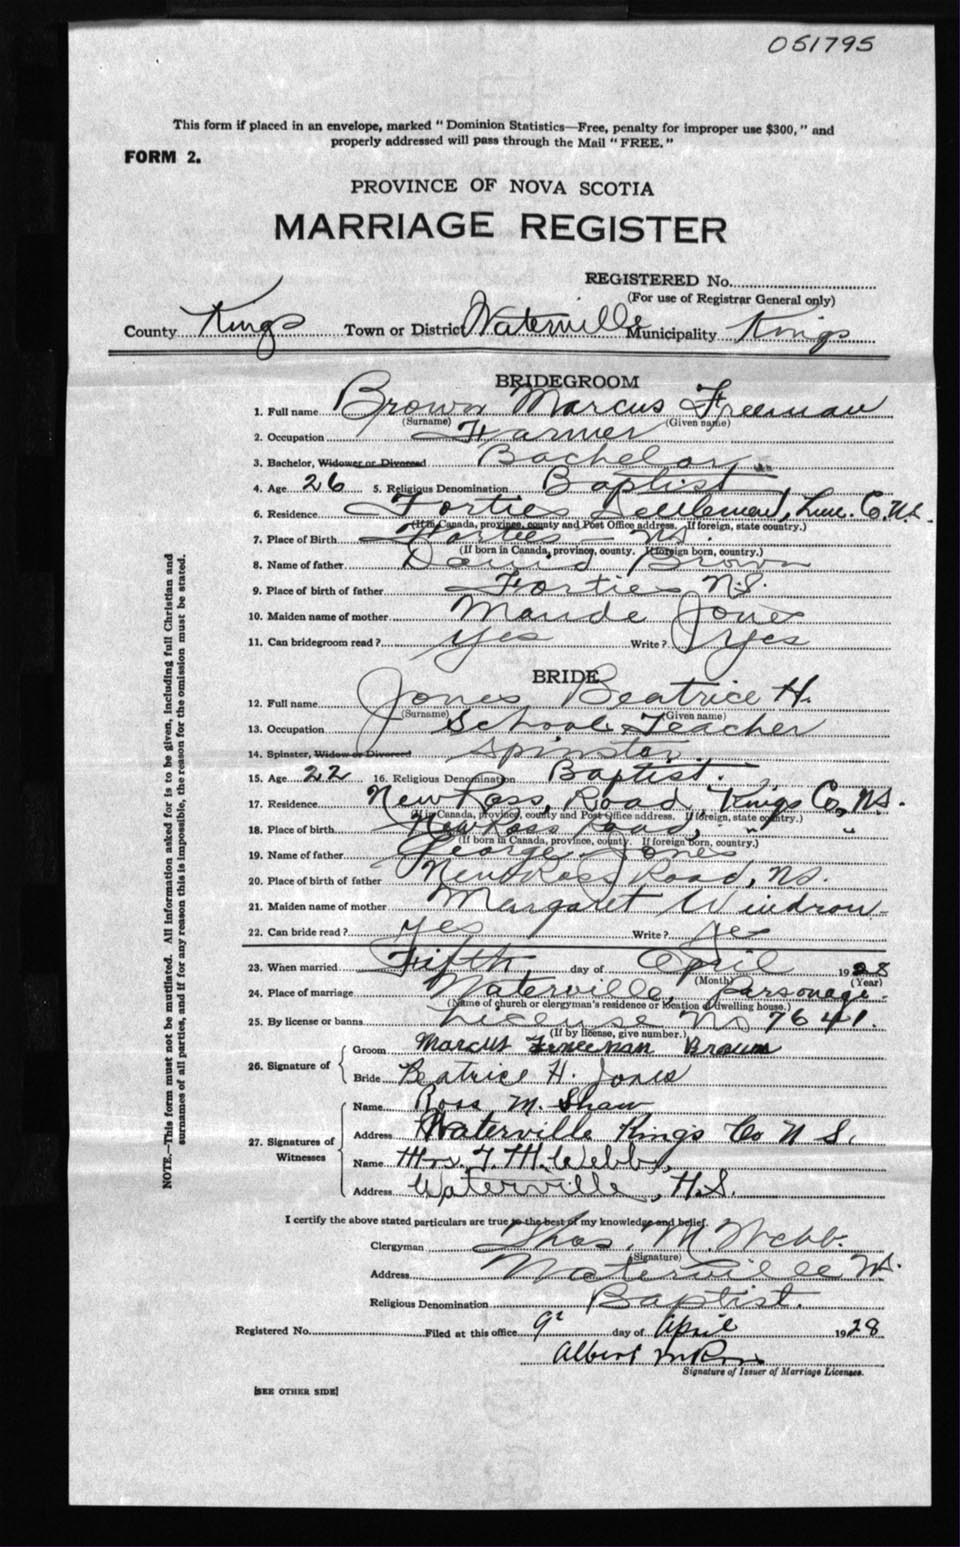 051795
This form if placed in an envelope, marked " Dominion Statistics—Free, penalty for improper use $300, " and
properly addressed will pass through the Mail " FREE. "
FORM 2.
PROVINCE OF NOVA SCOTIA
MARRIAGE REGISTER
REGISTERED No.
(For use of Registrar General only)
County Kings Town or District Waterville Municipality Kings
BRIDEGROOM
1. Full name Brown Marcus Freeman
(Surname) (Given name)
2. Occupation Farmer
3. Bachelor, Widower or Divorced Bachelor
4. Age 26 5. Religious Denomination Baptist
6. Residence Forties Settlement, Lun. Co. N.S.
(If in Canada, province, county and Post Office address. If foreign, state country.)
7. Place of Birth Forties — N.S.
(If born in Canada, province, county. If foreign born, country.)
8. Name of father David Brown
9. Place of birth of father Forties N.S.
10. Maiden name of mother Maude Jones
11. Can bridegroom read ? yes Write ? yes
BRIDE
12. Full name Jones Beatrice H.
(Surname) (Given name)
13. Occupation School Teacher
14. Spinster, Widow or Divorced Spinster
15. Age 22 16. Religious Denomination Baptist.
17. Residence New Ross Road, Kings Co, N.S.
(If in Canada, province, county and Post Office address. If foreign, state country.)
18. Place of birth New Ross Road, " "
(If born in Canada, province, county. If foreign born, country.)
19. Name of father George Jones
20. Place of birth of father New Ross Road, N.S.
21. Maiden name of mother Margaret Windrow
22. Can bride read ? yes Write ? yes
23. When married Fifth day of April 1928
(Month) (Year)
24. Place of marriage Waterville, Parsonage.
(Name of church or clergyman's residence or location of dwelling house.)
25. By license or banns License No 7641.
(If by license, give number.)
26. Signature of Groom Marcus Freeman Brown
Bride Beatrice H. Jones
27. Signatures of Witnesses Name Ross M. Shaw
Address Waterville Kings Co N S.
Name Mrs. T. M. Webb,
Address Waterville, N.S.
I certify the above stated particulars are true to the best of my knowledge and belief.
Clergyman Thos. M. Webb.
(Signature)
Address Waterville N.S.
Religious Denomination Baptist.
Registered No. Filed at this office 9 day of April 1928
Albert
Signature of Issuer of Marriage Licenses.
[SEE OTHER SIDE]
NOTE.—This form must not be mutilated. All information asked for is to be given, including full Christian and
surnames of all parties, and if for any reason this is impossible, the reason for the omission must be stated.